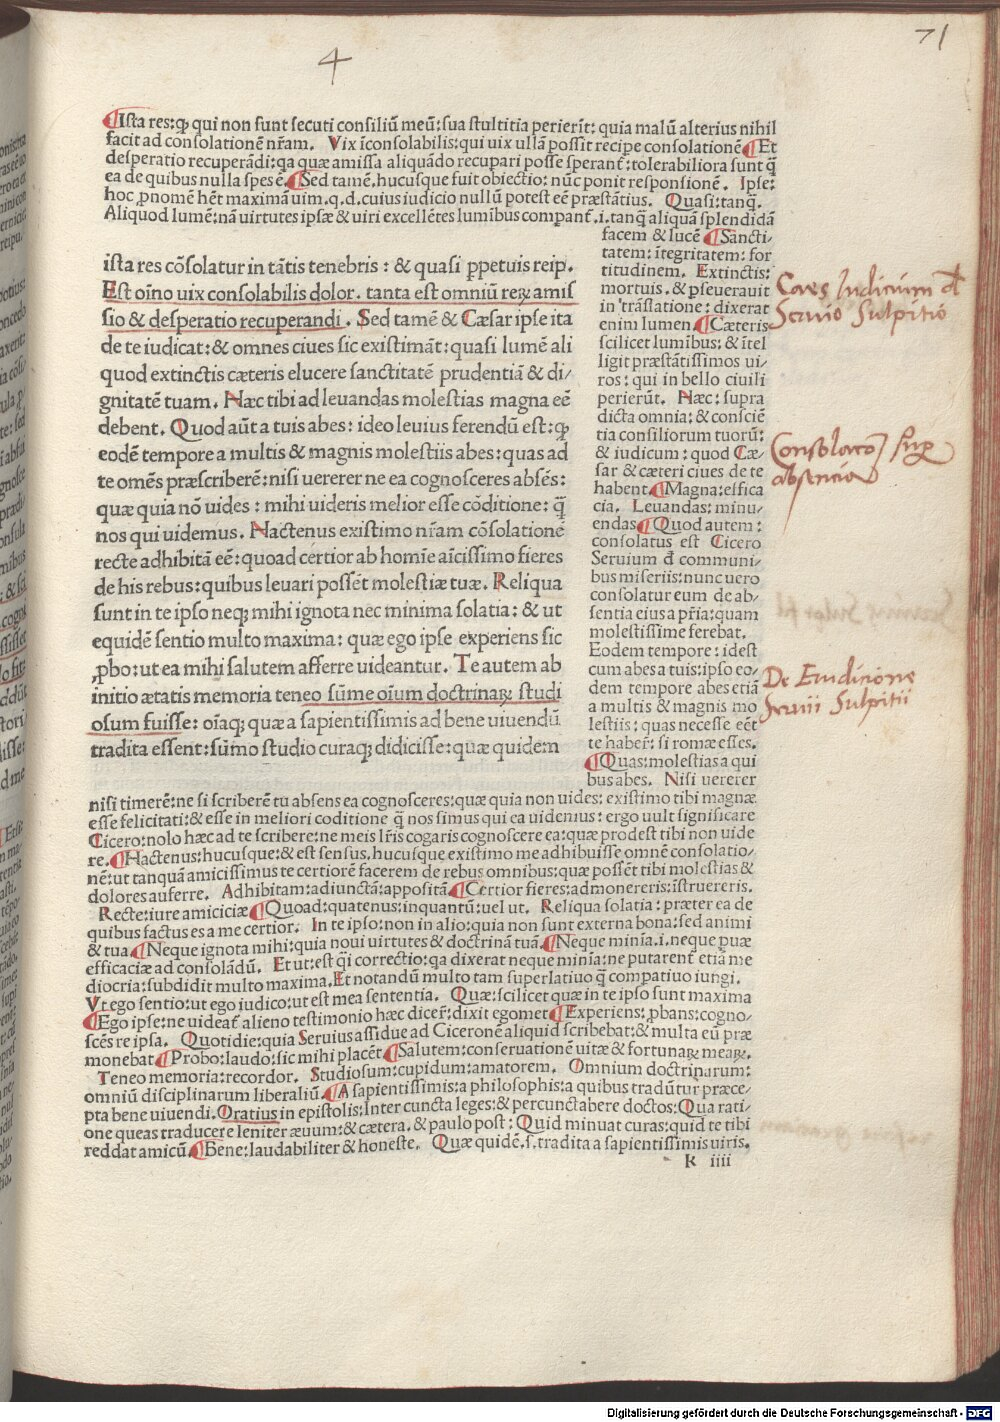 4
71
¶Ista res:ꝙ qui non sunt secuti consiliū meū:sua stultitia perierīt: quia malū alterius nihil
facit ad consolationē nr̄am. Vix īconsolabilis:qui uix ullā possit recipe consolationē¶Et
desperatio recuperādi:qa quæ amissa aliquādo recupari posse sperant̄:tolerabiliora sunt q̄
ea de quibus nulla spes ē¶Sed tamē.hucusque fuit obiectio: nūc ponit responsionē. Ipse:
hoc ꝓnomē hēt maximā uim.q.d.cuius iudicio nullū potest eē præstātius. Quasi:tanq̄.
Aliquod lumē:nā virtutes ipsæ & uiri excellētes lumībus compant̄.i.tanq̄ aliquā splendidā
facem & lucē ¶Sāncti/
tatem: ītegritatem: for
titudinem. Extinctis:
mortuis. & ꝑseuerauit
in trāslatione: dixerat
enim lumen ¶Cæteris
scilicet lumībus: & ītel
ligit præstātissimos ui/
ros: qui in bello ciuili
perierūt. Næc: supra
dicta omnia: & consciē
tia consiliorum tuorū:
& iudicum: quod Cæ/
sar & cæteri ciues de te
habent ¶Magna:effica
cia. Leuandas: minu/
endas ¶Quod autem:
consolatus est Cicero
Seruium đ communi/
bus miseriis:nunc uero
consolatur eum de ab/
sentia eius a pr̄ia:quam
molestissime ferebat.
Eodem tempore: idest
cum abes a tuis:ipso eo/
dem tempore abes etiā
a multis & magnis mo
lestiis: quas necesse eēt
te haber̄: si romæ esses.
¶Quas:molestias a qui
bus abes. Nisi uererer
ista res cōsolatur in tātis tenebris : & quasi ꝑpetuis reip.
Est oīno uix consolabilis dolor. tanta est omniū reꝝ amis
sio & desperatio recuperandi . Sed tamē & Cæsar ipse ita
de te iudicat:& omnes ciues sic existimāt:quasi lumē ali
quod extinctis cæteris elucere sanctitatē prudentiā & di/
gnitatē tuam. Næc tibi ad leuandas molestias magna eē
debent. Quod aūt a tuis abes: ideo leuius ferendū est:ꝙ
eodē tempore a multis & magnis molestiis abes:quas ad
te omēs præscriberē:nisi uererer ne ea cognosceres absēs:
quæ quia nō uides : mihi uideris melior esse cōditione: q̄
nos qui uidemus. Nactenus existimo nr̄am cōsolationē
recte adhibitā eē:quoad certior ab homīe aīcissimo fieres
de his rebus:quibus leuari possēt molestiæ tuæ. Reliqua
sunt in te ipso neqꝫ mihi ignota nec minima solatia: & ut
equidē sentio multo maxima: quæ ego ipse experiens sic
ꝓbo:ut ea mihi salutem afferre uideantur. Te autem ab
initio ætatis memoria teneo sūme oīum doctrinaꝝ studi
osum fuisse: oīaqꝫ quæ a sapientissimis ad bene uiuendū
tradita essent:sūmo studio curaqꝫ didicisse:quæ quidem
nisi timerē:ne si scriberē tu absens ea cognosceres:quæ quia non uides: existimo tibi magnæ
esse felicitati:& esse in meliori coditione q̄ nos simus qui ea uidenius: ergo uult significare
Cicero:nolo hæc ad te scribere:ne meis lr̄is cogaris cognoscere ea:quæ prodest tibi non uide
re.¶Hactenus:hucusque:& est sensus, hucusque existimo me adhibuisse omnē consolatio/
nē:ut tanquā amicissimus te certiorē facerem de rebus omnibus:quæ possēt tibi molestias &
dolores auferre. Adhibitam:adiunctā:appositā.¶Certior fieres:admonereris:īstruereris.
Recte:iure amiciciæ ¶Quoad:quatenus:inquantū:uel ut. Reliqua solatia: præter ea de
quibus factus es a me certior. In te ipso:non in alio:quia non sunt externa bona:sed animi
& tua.¶Neque ignota mihi:quia noui virtutes & doctrinā tuā.¶Neque minīa.i.neque puæ
efficaciæ ad consolādū. Et ut:est q̄i correctio:qa dixerat neque minīa:ne putarent̄ etiā me
diocria:subdidit multo maxima.Et notandū multo tam superlatiuo q̄ compatiuo iungi.
Vt ego sentio:ut ego iudico:ut est mea sententia. Quæ:scilicet quæ in te ipso sunt maxima
¶Ego ipse:ne uideat̄ alieno testimonio hæc dicer̄:dixit egomet ¶Experiens:ꝓbans:cogno/
scēs re ipsa. Quotidie:quia Seruius assidue ad Ciceronē aliquid scribebat:& multa eū præ
monebat ¶Probo:laudo:sic mihi placēt ¶Salutem:conseruationē uitæ & fortunaꝝ meaꝝ.
Teneo memoria:recordor. Studiosum:cupidum:amatorem. Omnium doctrinarum:
omniū disciplinarum liberaliū.¶A sapientissimis:a philosophis:a quibus tradūtur præce/
pta bene uiuendi. Oratius in epistolis:Inter cuncta leges:& percunctabere doctos:Qua rati/
one queas traducere leniter æuum:& cætera. & paulo post: Quid minuat curas:quid te tibi
reddat amicū.¶Bene:laudabiliter & honeste. Quæ quidē.s.tradita a sapientissimis uiris.
k iiii
Caes Iudicium d
Seruio Sulpitio
Consolatio sup
absencia
De Erudicione
Seruii Sulpitii
Digitalisierung gefördert durch die Deutsche Forschungsgemeinschaft - DFG